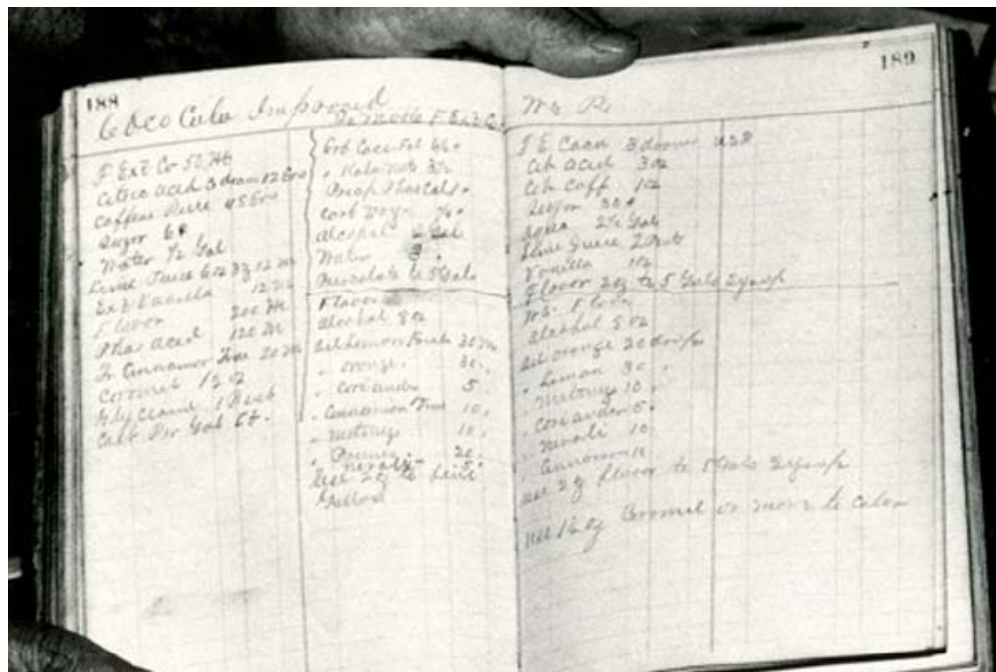 188
Coco Cola Improved
F Ext Co 52
Citric Acid 3 dram 12 Gro
Caffeine Pure 48 Gro
Sugar 6#
Water 1/2 Gal
Lime Juice 6 oz 12
Ext Vanilla 12 M
Flavor 200 M
Phos Acid 120 M
Tr Cinnamon True 20 M
Caramel 1/2 oz
Glycerine
Cost Per Gal
To Make F Ext Co
Grd Coca
" Kola Nuts
Precip Phos
Carb
Alcohol
Water
Percolate to 5 Gals
Flavor
Alcohol 8 oz
Oil Lemon 30 M
" Orange 30 "
" Coriander 5 "
" Cinnamon True 10 "
" Nutmeg 10 "
20 "
" 5 "
use 2 oz to
189
F E Coca 3 drams USP
Cit Acid 3 oz
Cit Caff 1 oz
Sugar 30 #
Aqua 2 1/2 Gal
Lime Juice 2
Vanilla 1 oz
Flavor 2 oz to 5 Gals Syrup
Flavor
Alcohol 8 oz
Oil Orange 20 drops
" Lemon 30 "
" Nutmeg 10 "
" Coriander 5 "
" Neroli 10 "
" Cinnamon
use 2 oz flavor to 5 Gals Syrup
use 1 1/2 oz Caramel or more to Color